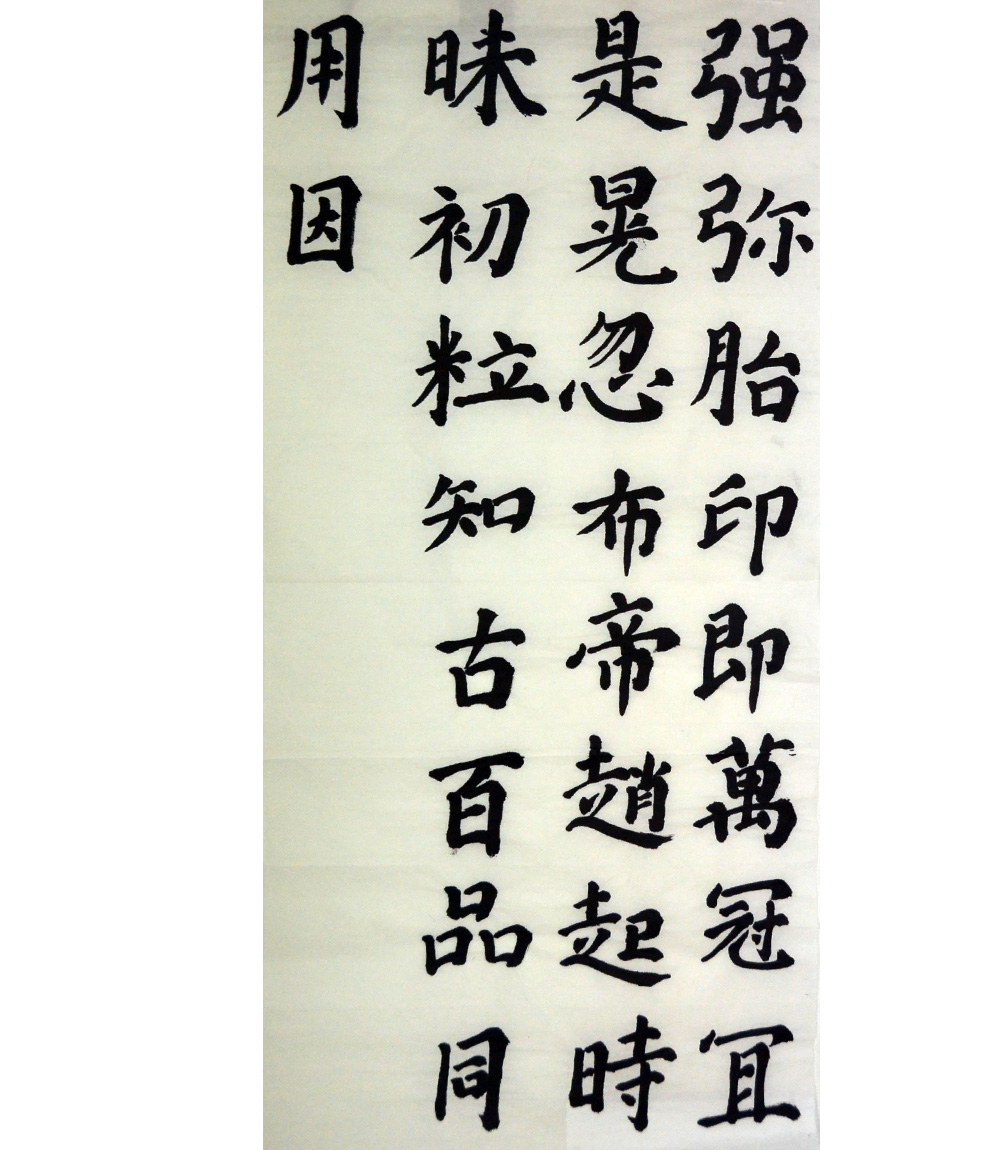 强弥胎印即萬冠冝
是晃忽布帝趙起時
昧初粒知古百品同
用因